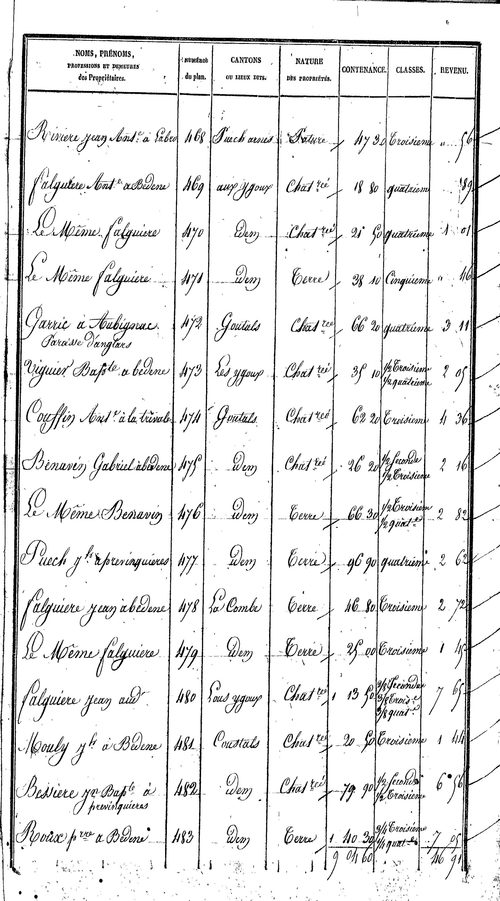 NOMS, PRÉNOMS, PROFESSIONS ET DEMEURES des Propriétaires. NUMÉROS du plan. CANTONS OU LIEUX DITS. NATURE DES PROPRIÉTÉS. CONTENANCE. CLASSES. REVENU.
Riviere jean Ant.e à Labro 468 Puech arnies Pature 47 30 Troisieme " 56
falguiere Ant.e a Bedene 469 aux ygoux Chat.réé 18 80 quatriem 89
Le Même falguiere 470 idem Chat.réé 21 50 quatrieme 1 01
Le Même falguiere 471 idem Terre 38 10 Cinquieme " 46
Garric à Aubignac 472 Goutals Chat.réé 66 20 quatrieme 3 11
Paroisse d'anglars
Viguier Bap.te a bedene 473 Les ygoux Chat.réé 35 10 1/2 Troisieme 2 05
1/2 quatrieme
Couffin Ant.e à la 474 Goutals Chat.réé 62 20 Troisieme 4 36
Benavin Gabriel a bedene 475 idem Chat.réé 26 20 1/2 Seconde 2 16
1/2 Troisieme
Le Même Benavin 476 idem Terre 66 30 1/2 Troisieme 2 82
1/2 quat.e
Puech à previnquieres 477 idem Terre 96 90 quatrieme 2 62
falguiere jean a bedene 478 La Combe Terre 46 80 Troisieme 2 72
Le Même falguiere 479 idem Terre 25 00 Troisieme 1 45
falguiere jean aud.t 480 Lous ygoux Chat.réé 1 13 50 Seconde 7 65
Trois.e
quat.e
Mouly à Bedene 481 Coustals Chat.réé 20 50 Troisieme 1 44
Bessiere jn Bap.te à 482 idem Chat.réé 79 90 1/2 Seconde 6 56
previnquieres 1/2 Troisieme
Roux p.rre a Bedene 483 idem Terre 1 40 30 3/4 Troisieme 7 05
1/4 quat.e
9 04 60 46 91